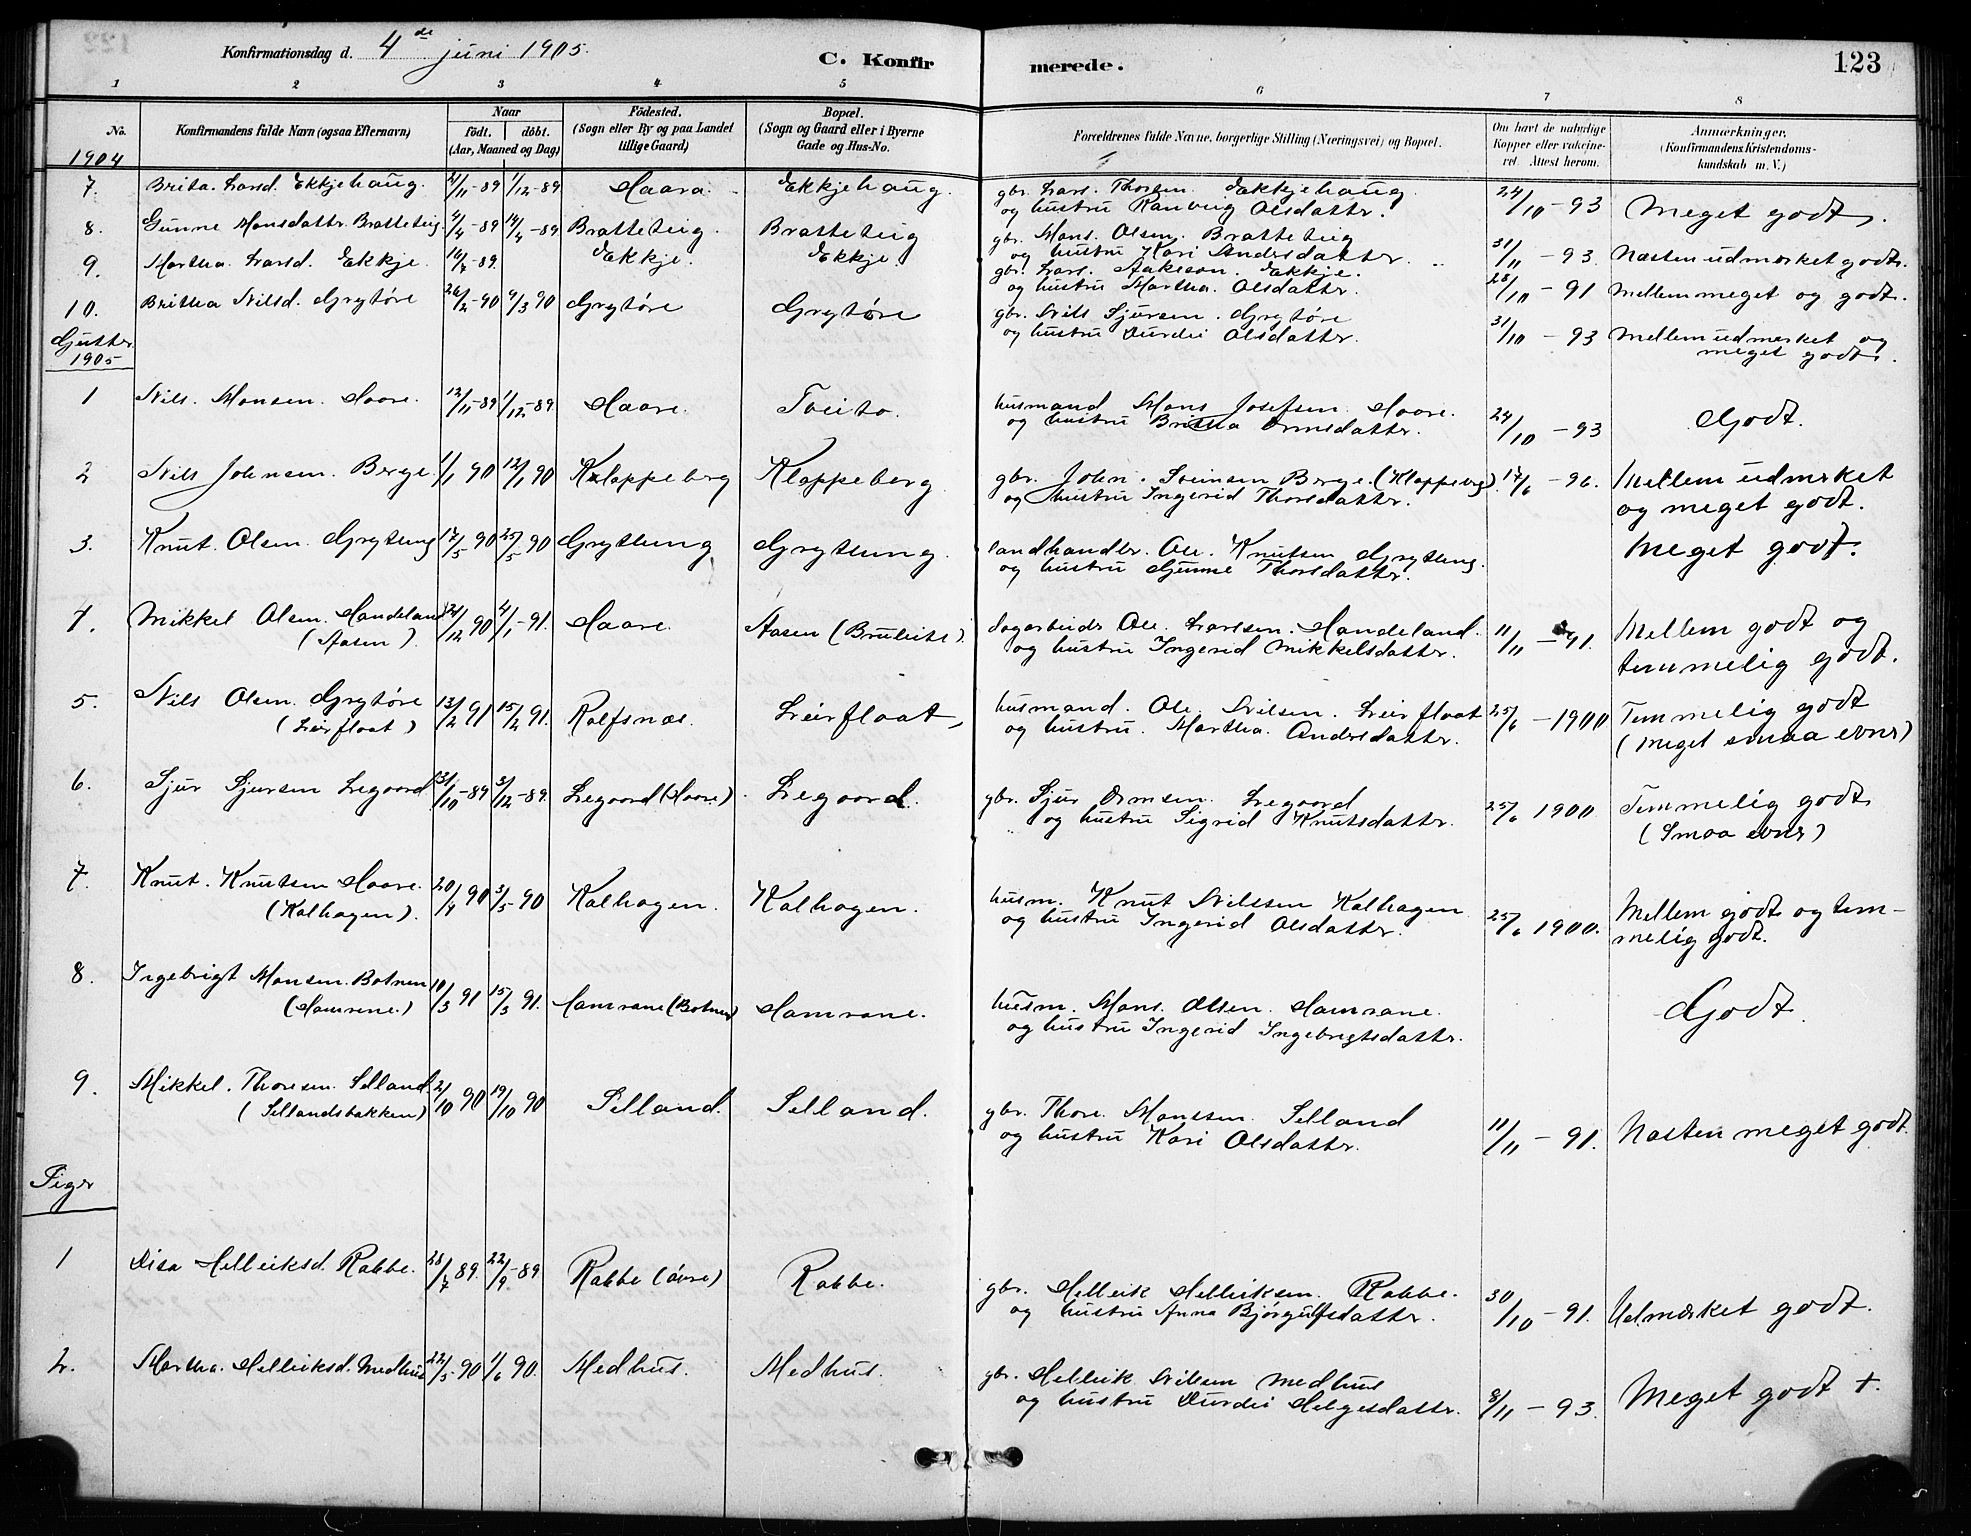 Konfirmationsdag d. 4de juni 1905.
C. Konfirmerede.
123
1 2 3 4 5 6 7 8
No.
Konfirmandens fulde Navn (ogsaa Efternavn)
Naar
födt. döbt.
(Aar, Maaned og Dag)
Födested.
(Sogn eller By og paa Landet
tillige Gaard)
Bopæl.
(Sogn og Gaard eller i Byerne
Gade og Hus-No.
Forældrenes fulde Navne, borgerlige Stilling (Næringsvei) og Bopæl.
Om havt de naturlige
Kopper eller vakcine-
ret. Attest herom.
Anmærkninger.
(Konfirmandens Kristendoms-
kundskab m. V.)
1904
7. Brita Larsd. Ekkjehaug. 21/11-89 1/12-89 Haara. Ekkjehaug. gbr. Lars. Thorsen. Ekkjehaug
og hustru Ranveig Olsdatter. 24/10-93 Meget godt.
8. Gunne Monsdattr. Bratteteig 4/4-89 14/4-89 Bratteteig. Bratteteig gbr. Mons. Olsen. Bratteteig
og hustru Kari Andersdatter. 31/11-93 Næsten udmærket godt.
9. Martha. Larsd. Ekkje. 16/7-89. Ekkje. Ekkje. gbr. Lars. Aakeson. Ekkje.
og hustru Martha. Olsdatter. 28/10-91 Mellem meget og godt.
10. Britha Nilsd. Grytöre 26/2-90 9/3 90 Grytöre Grytöre gbr. Nils Sjursen. Grytöre
og hustru Durdei Olsdatter. 31/10-93 Mellem udmærket og
meget godt.
Gutter
1905
1 Nils. Monsen. Haare. 12/11-89 1/12-89. Haare. Tveito. husmand Mons Josefsen. Haare.
og hustru Britha Ormsdatter. 24/10-93 Godt.
2 Nils Johnsen. Berge. 1/1 90 12/1 90 Kloppeberg Kloppeberg gbr. John. Sveinsen Berge. (Kloppeberg).
og hustru Ingerid Thorsdatter. 17/6-96. Mellem udmærket
og meget godt.
3. Knut. Olsen. Grytling 17/5 90 25/5 90 Grytling Grytling. landhandler. Ole. Knutsen Grytling.
og hustru Gunne Thorsdatter. Meget godt.
4. Mikkel Olsen. Handeland
(Aasen) 21/12 90 4/1-91. Haare. Aasen (Bruleite). dagarbeider Ole. Larsen. Handeland.
og hustru Ingerid Mikkelsdatter. 11/11-91. Mellem godt og
temmelig godt.
5. Nils Olsen. Grytöre
(Leirfloat) 13/2 91 15/2 91. Rolfsnæs. Leirfloat, husmand. Ole. Nilsen. Leirfloat
og hustru. Martha. Andersdatter. 25/6-1900 Temmelig godt
(meget smaa evner)
6. Sjur Sjursen Legaard 31/10-89 3/12-89. Legaard (Haare). Legaard. gbr. Sjur Ormsen. Legaard
og hustru Sigrid Knutsdatter. 25/6 1900. Temmelig godt
(Smaa evner)
7. Knut. Knutsen Haare.
(Kalhagen). 20/4 90 3/5-90 Kalhagen. Kalhagen. husm. Knut Nilssen Kalhagen
og hustru Ingerid Olsdatter. 25/6 1900. Mellem godt og tem-
melig godt.
8. Ingebrigt Monsen. Botnen
(Hamrene.) 10/3 91 15/3 91. Hamrane (Botnen) Hamrane. husm. Mons. Olsen. Hamrane.
og hustru Ingerid Ingebrigtsdatter. Godt.
9. Mikkel. Thoresen. Selland
(Sellandsbakken) 2/10 90 19/10 90 Selland. Selland. gbr. Thore. Monsen. Selland
og hustru Kari Olsdatter. 11/11-91. Næsten meget godt.
Piger
1 Disa Helleiksd. Rabbe. 28/7 89. 22/9-89 Rabbe (övre) Rabbe. gbr. Helleik Helleiksen. Rabbe.
og hustru Anna Bjørgulfsdatter. 30/10-91. Udmærket godt.
2. Martha. Helleiksd. Medhus 22/5-90 1/6 90. Medhus. Medhus. gbr. Helleik Nilsen Medhus
og hustru Durdei Helgesdatter. 8/11-93. Meget godt +.